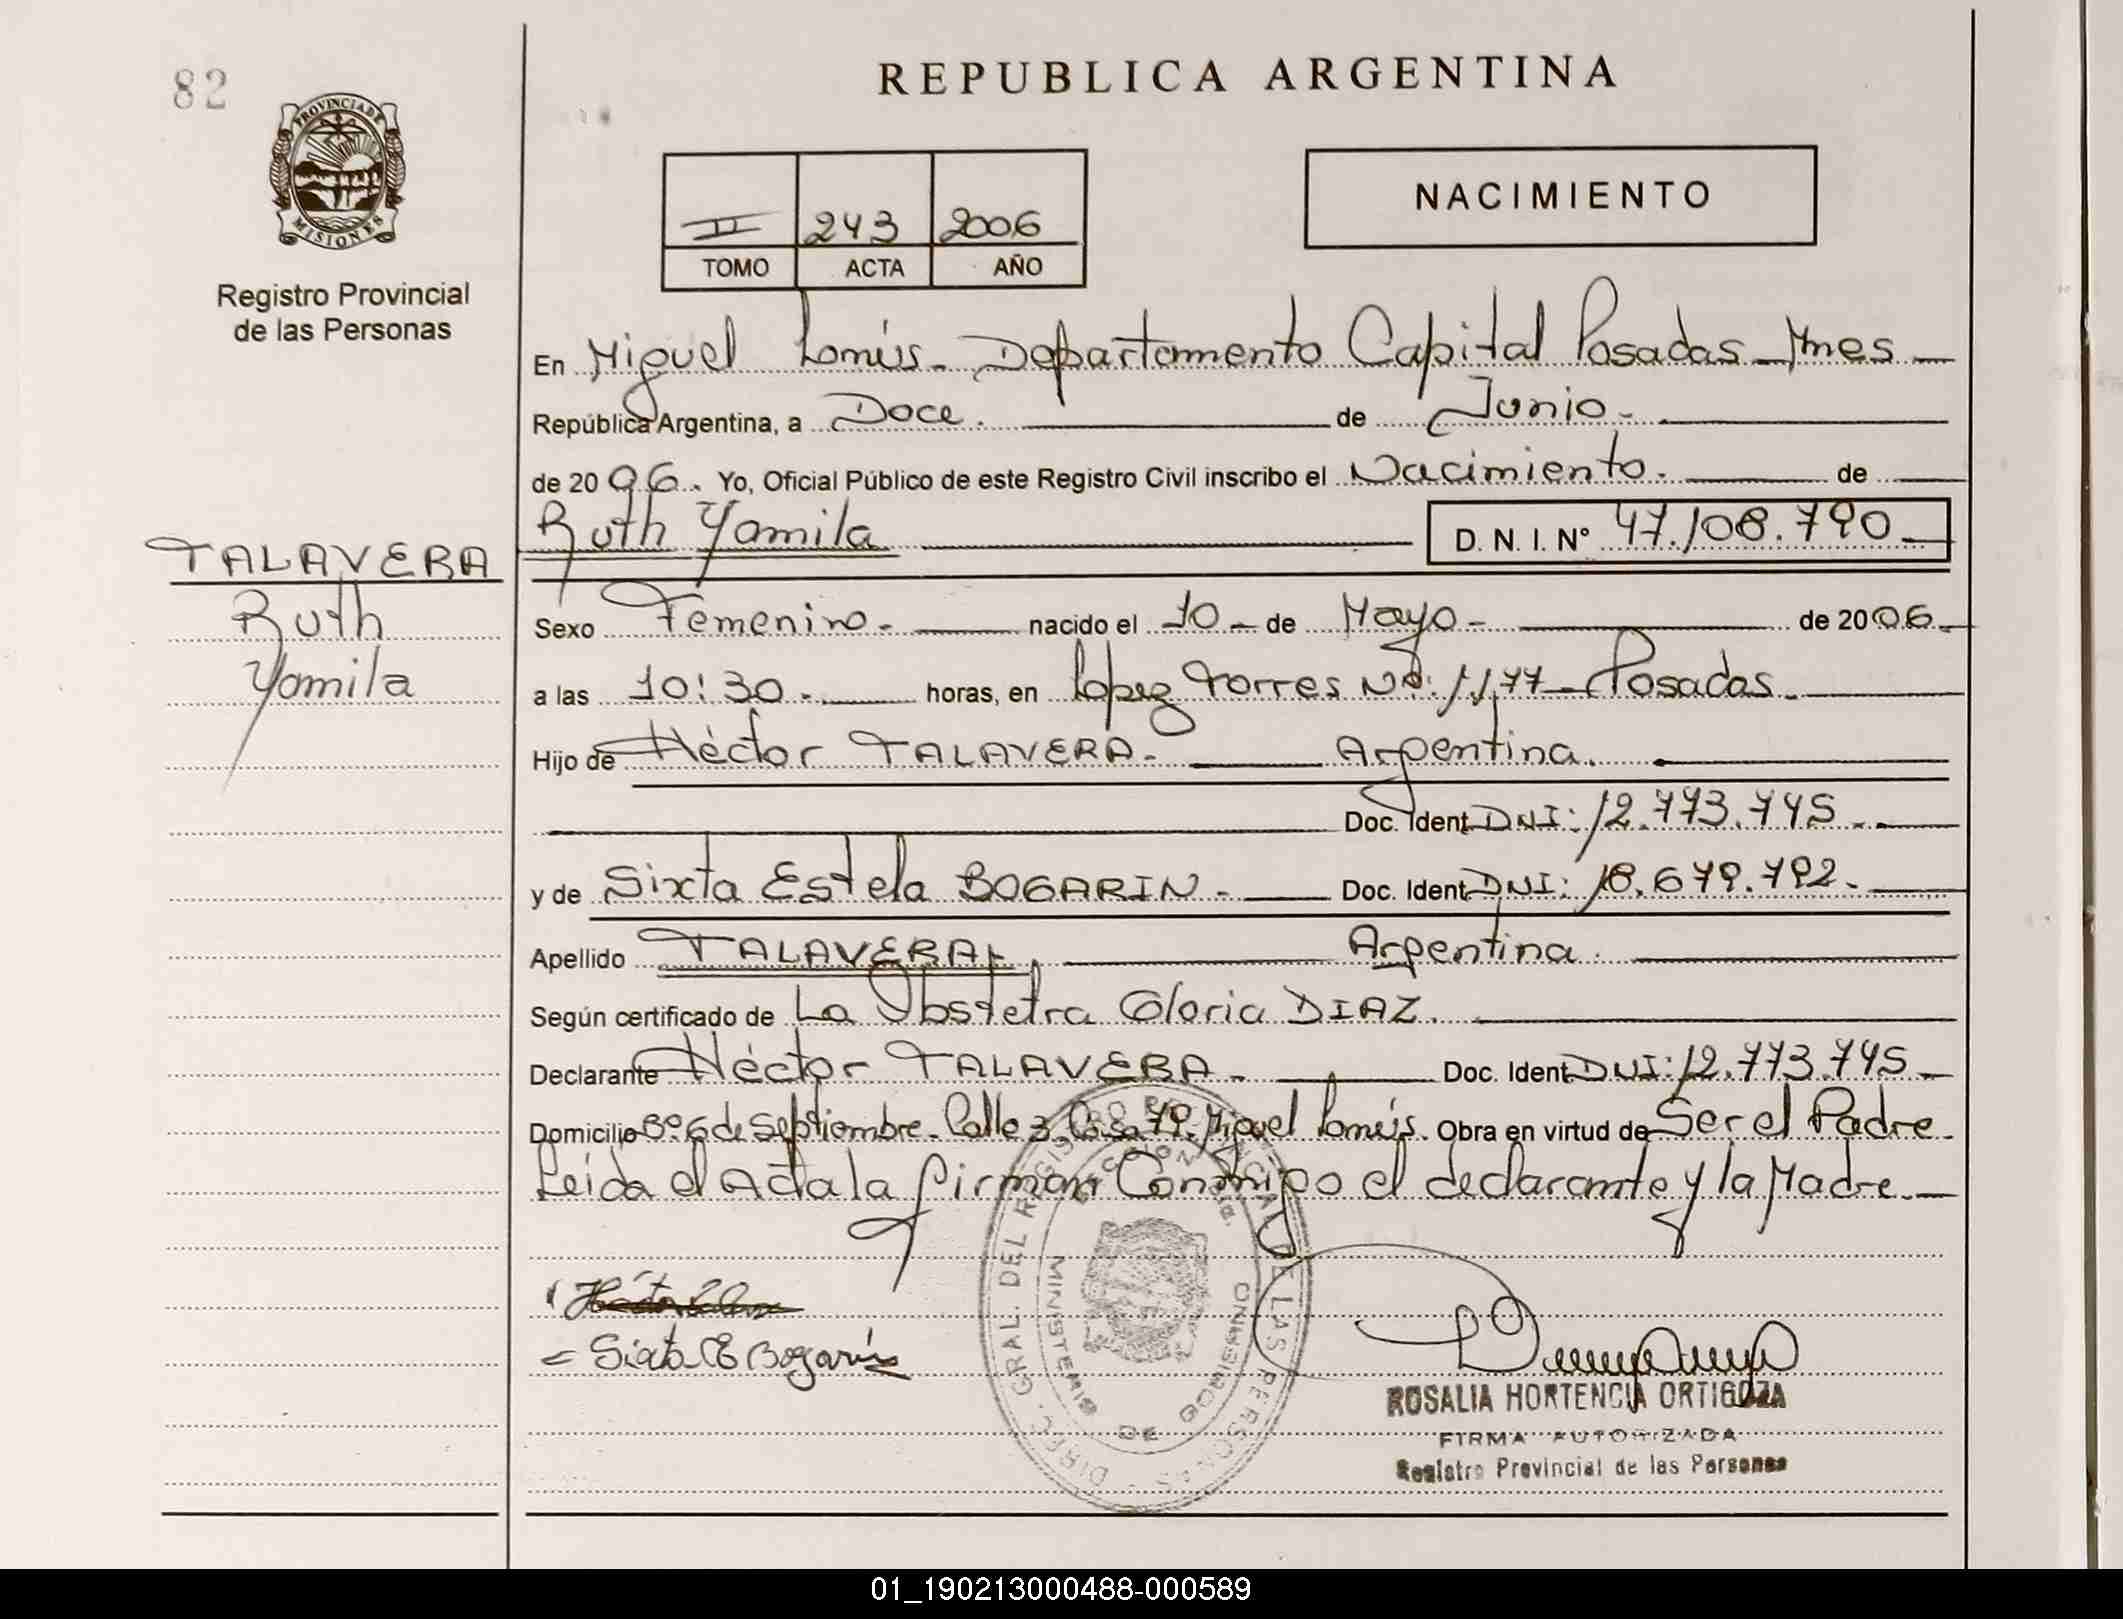 82
REPUBLICA ARGENTINA
PROVINCIA DE
MISIONES
Registro Provincial
de las Personas
II 243 2006
TOMO ACTA AÑO
NACIMIENTO
En Miguel Lanús - Departamento Capital Posadas - Mnes
República Argentina, a Doce. de Junio.
de 2006. Yo, Oficial Público de este Registro Civil inscribo el Nacimiento. de
Ruth Yamila D. N. I. Nº 47.108.790
TALAVERA
Ruth
Yamila
Sexo Femenino. nacido el 10 de Mayo - de 2006.
a las 10:30. horas, en López Torres Nº: 1177 - Posadas.
Hijo de Héctor TALAVERA. Argentina.
Doc. Ident. DNI: 12.773.745
y de Sixta Estela BOGARIN. Doc. Ident. DNI: 18.679.792.
Apellido TALAVERA. Argentina.
Según certificado de La Obstetra Gloria DIAZ.
Declarante Héctor TALAVERA. Doc. Ident. DNI: 12.773.745
Domicilio Bº 6 de Septiembre. Calle 3. Casa 79. Miguel Lanús. Obra en virtud de Ser el Padre.
Leída el Acta la firman Conmigo el declarante y la Madre.
Sixta E Bogarín
DIREC. GRAL. DEL REGISTRO PROVINCIAL DE LAS PERSONAS
MINISTERIO DE GOBIERNO
ROSALIA HORTENCIA ORTIGOZA
FIRMA AUTORIZADA
Registro Provincial de las Personas
01_190213000488-000589